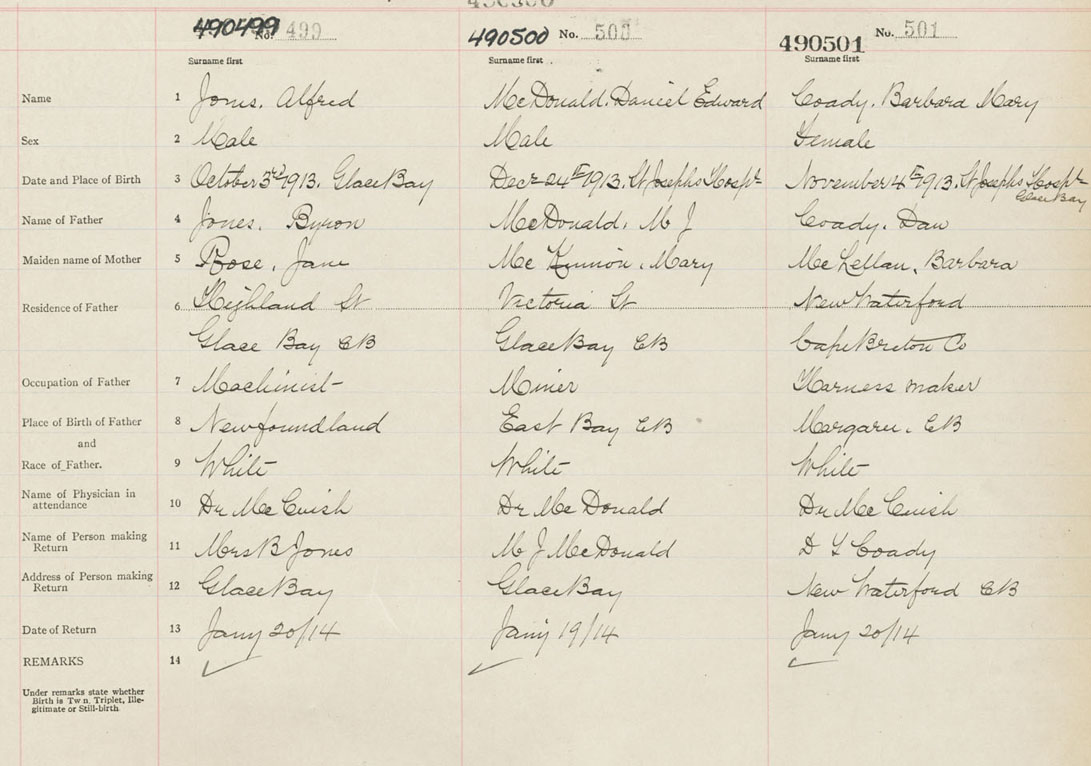 490499 No. 499 490500 No. 500 490501 No. 501
Surname first Surname first Surname first
Name 1 Jones, Alfred McDonald, Daniel Edward Coady, Barbara Mary
Sex 2 Male Male Female
Date and Place of Birth 3 October 3rd 1913. Glace Bay Decr 24th 1913. St Josephs Hospt November 4th 1913. St Josephs Hospt
Glace Bay
Name of Father 4 Jones, Byron McDonald, M J Coady, Dan
Maiden name of Mother 5 Rose, Jane McKinnon, Mary McLellan, Barbara
Residence of Father 6 Highland St Victoria St New Waterford
Glace Bay CB Glace Bay CB Cape Breton Co
Occupation of Father 7 Machinist Miner Harness maker
Place of Birth of Father 8 Newfoundland East Bay CB Margaree, CB
and
Race of Father. 9 White White White
Name of Physician in
attendance 10 Dr McCuish Dr McDonald Dr McCuish
Name of Person making
Return 11 Mrs B Jones M J McDonald D Coady
Address of Person making
Return 12 Glace Bay Glace Bay New Waterford CB
Date of Return 13 Jany 20/14 Jany 19/14 Jany 20/14
REMARKS 14
Under remarks state whether
Birth is Twn, Triplet, Ille-
gitimate or Still-birth.